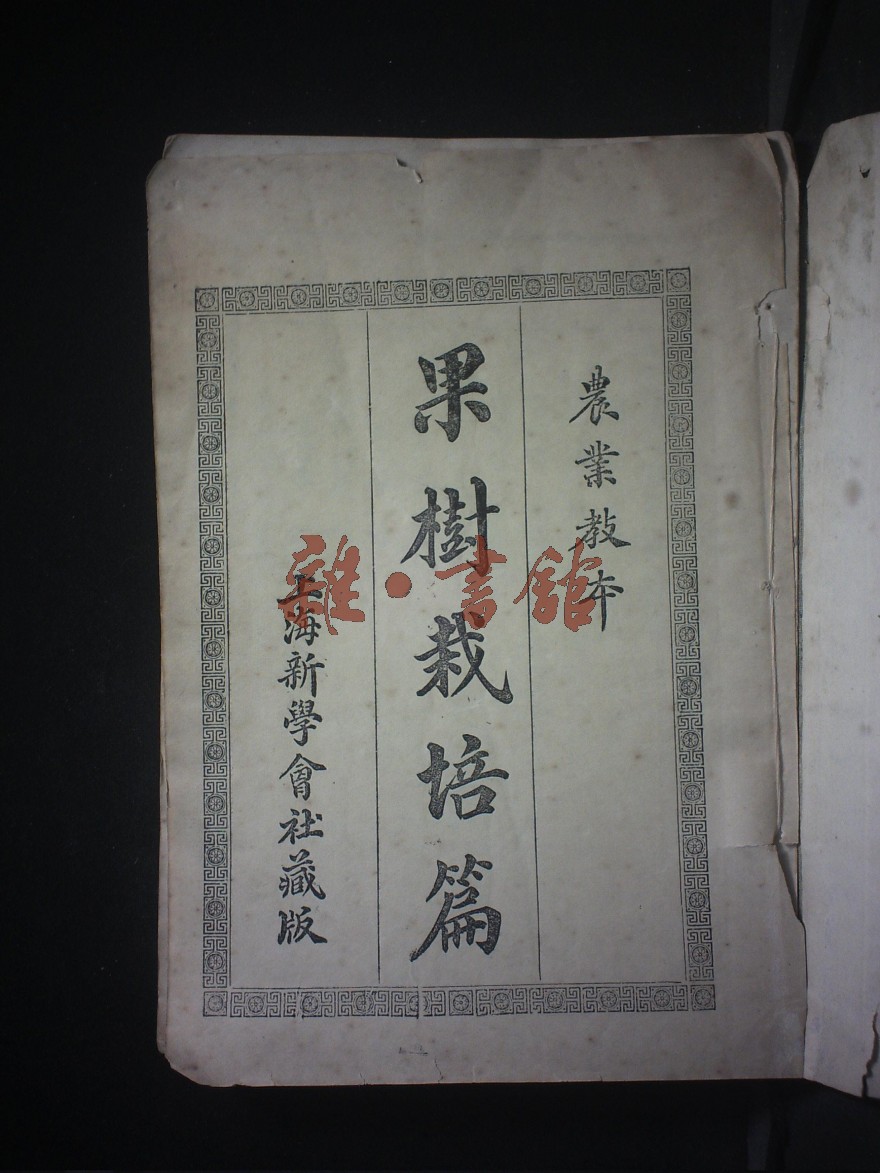 農業教本
果樹栽培篇
上海新學會社藏版
雜·書館